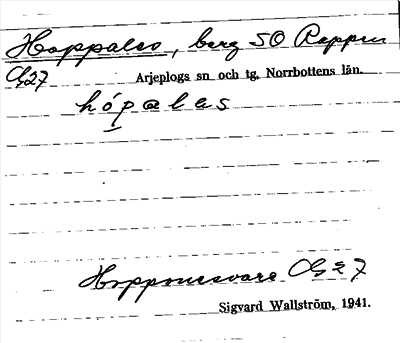 Hoppales, berg SO Rappen
Cg27 Arjeplogs sn och tg, Norrbottens län.
hópalas
Hopponesvare Cg27
Sigvard Wallström, 1941.